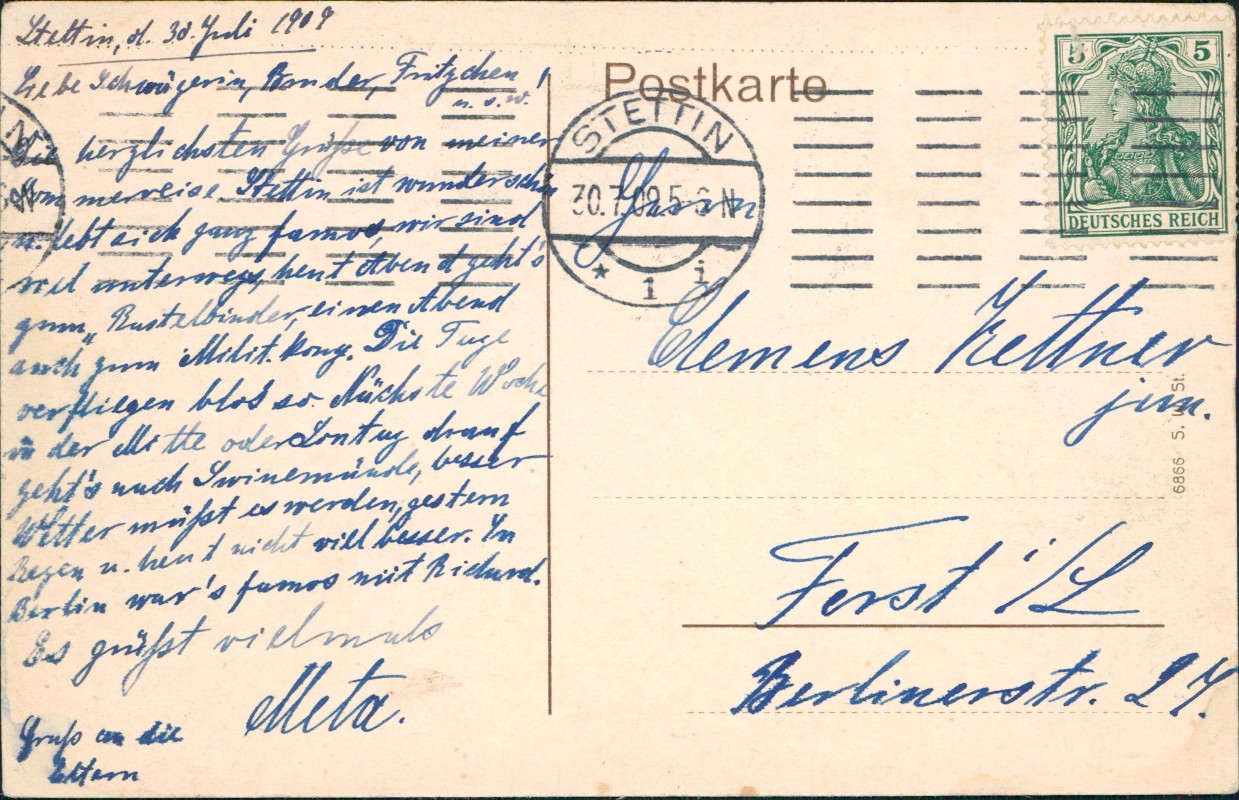 Stettin, d. 30. Juli 1909
Liebe Schwägerin, Bruder, Fritzchen
u. s. w.!
Die herzlichsten Grüße von meiner
Sommerreise. Stettin ist wunderschön
u. lebt sich ganz famos, wir sind
viel unterwegs, heut Abend geht's
zum „Rastelbinder, einen Abend
auch zum Milit. Konz. Die Tage
verfliegen blos so. Nächste Woche
in der Mitte oder Sontag drauf
geht's nach Swinemünde, besser
Wetter müßt es werden, gestern
Regen u. heut nicht viel besser. In
Berlin war's famos mit Richard.
Es grüßt vielmals
Meta.
Gruß an die
Eltern
Postkarte
STETTIN
30.7.09.5-6 N
* 1 i
5 5
DEUTSCHES REICH
Clemens Kettner
jun.
Forst i/L
Berlinerstr. 27.
6866 S. W. St.